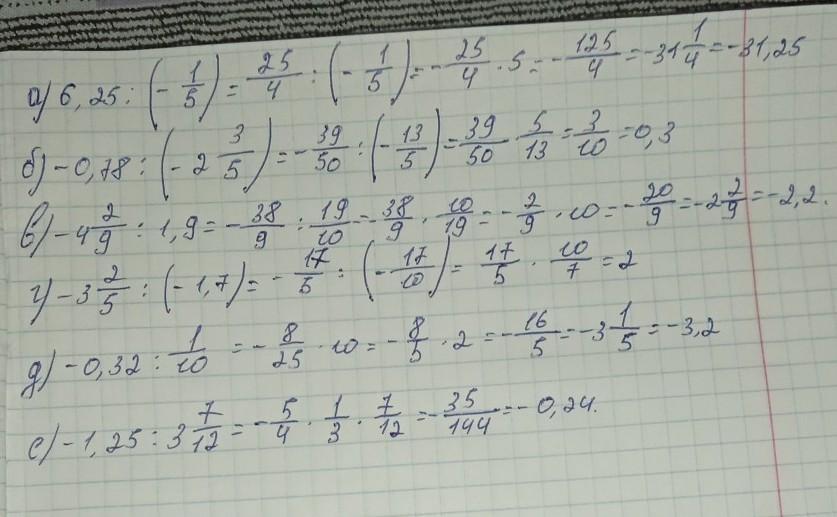 а) 6,25 : (-1/5) = 25/4 : (-1/5) = -25/4 · 5 = -125/4 = -31 1/4 = -31,25
б) -0,78 : (-2 3/5) = -39/50 : (-13/5) = 39/50 · 5/13 = 3/10 = 0,3
в) -4 2/9 : 1,9 = -38/9 : 19/10 = -38/9 · 10/19 = -2/9 · 10 = -20/9 = -2 2/9 = -2,2.
г) -3 2/5 : (-1,7) = -17/5 : (-17/10) = 17/5 · 10/7 = 2
д) -0,32 : 1/10 = -8/25 · 10 = -8/5 · 2 = -16/5 = -3 1/5 = -3,2
е) -1,25 : 3 7/12 = -5/4 · 1/3 · 7/12 = -35/144 = -0,24.